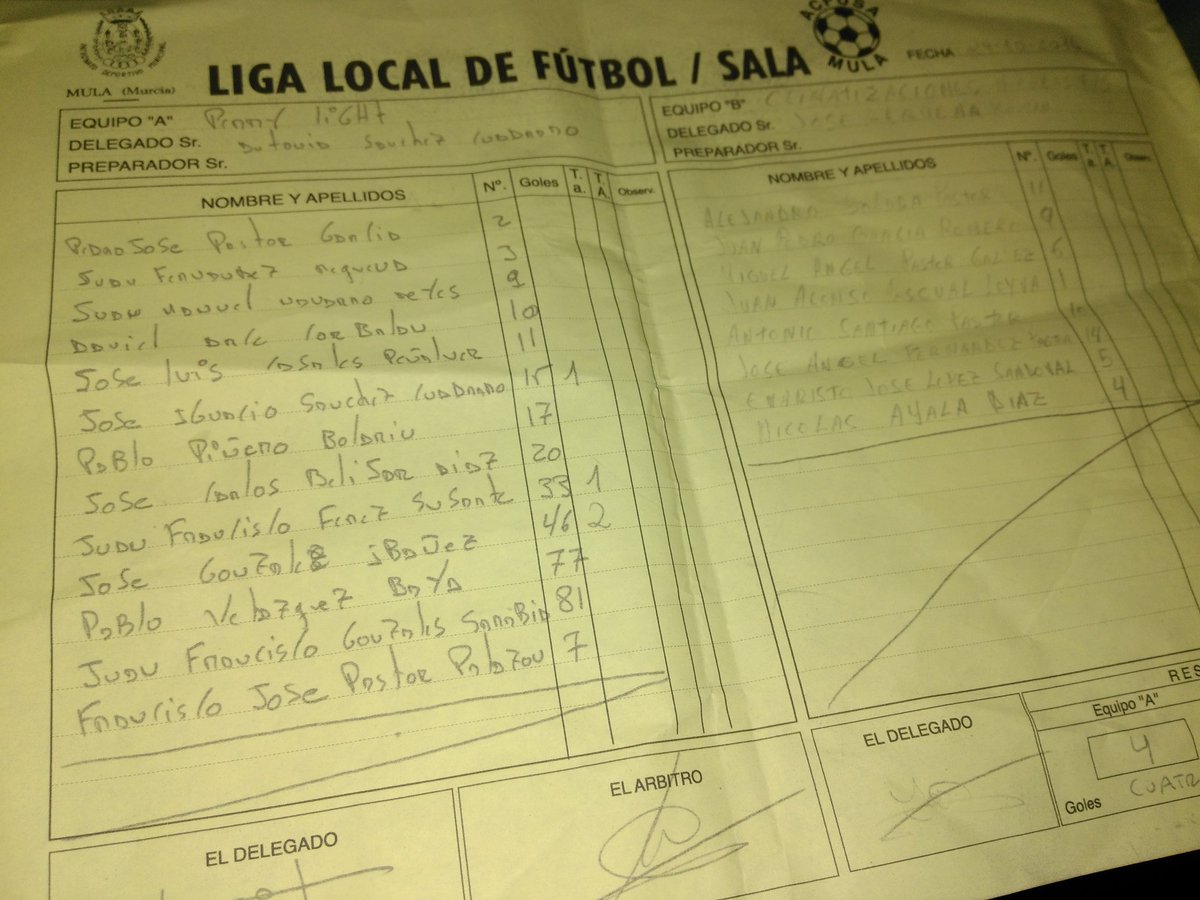 LIGA LOCAL DE FÚTBOL / SALA
ACFUSA
MULA
MULA (Murcia)
FECHA
EQUIPO "A" PENNY LIGHT
DELEGADO Sr. Antonio Sanchez Cuadrado
PREPARADOR Sr.
EQUIPO "B" CLIMATIZACIONES
DELEGADO Sr. JOSE
PREPARADOR Sr.
NOMBRE Y APELLIDOS Nº. Goles T. a. T. A. Observ.
PEDRO JOSE PASTOR GARCIA 2
JUAN FERNANDEZ 3
JUAN MANUEL REYES 9
DAVID 10
JOSE LUIS PEÑALVER 11
JOSE IGNACIO SANCHEZ CUADRADO 15 1
PABLO PIÑERO 17
JOSE CARLOS BELIJAR DIAZ 20
JUAN FRANCISCO 33 1
JOSE GONZALEZ IBAÑEZ 46 2
PABLO VELAZQUEZ BAYA 77
JUAN FRANCISCO GONZALES SANABIA 81
FRANCISCO JOSE PASTOR PALAZON 7
NOMBRE Y APELLIDOS Nº. Goles T. a. T. A. Observ.
ALEJANDRO PASTOR 11
JUAN PEDRO GARCIA ROMERO 9
MIGUEL ANGEL PASTOR GALVEZ 6
JUAN ALFONSO PASCUAL LEYVA 1
ANTONIO SANTIAGO PASTOR 10
JOSE ANGEL FERNANDEZ 14
EVARISTO JOSE LOPEZ SANDOVAL 5
NICOLAS AYALA DIAZ 4
EL DELEGADO
EL ARBITRO
EL DELEGADO
RES
Equipo "A"
4
Goles CUATR